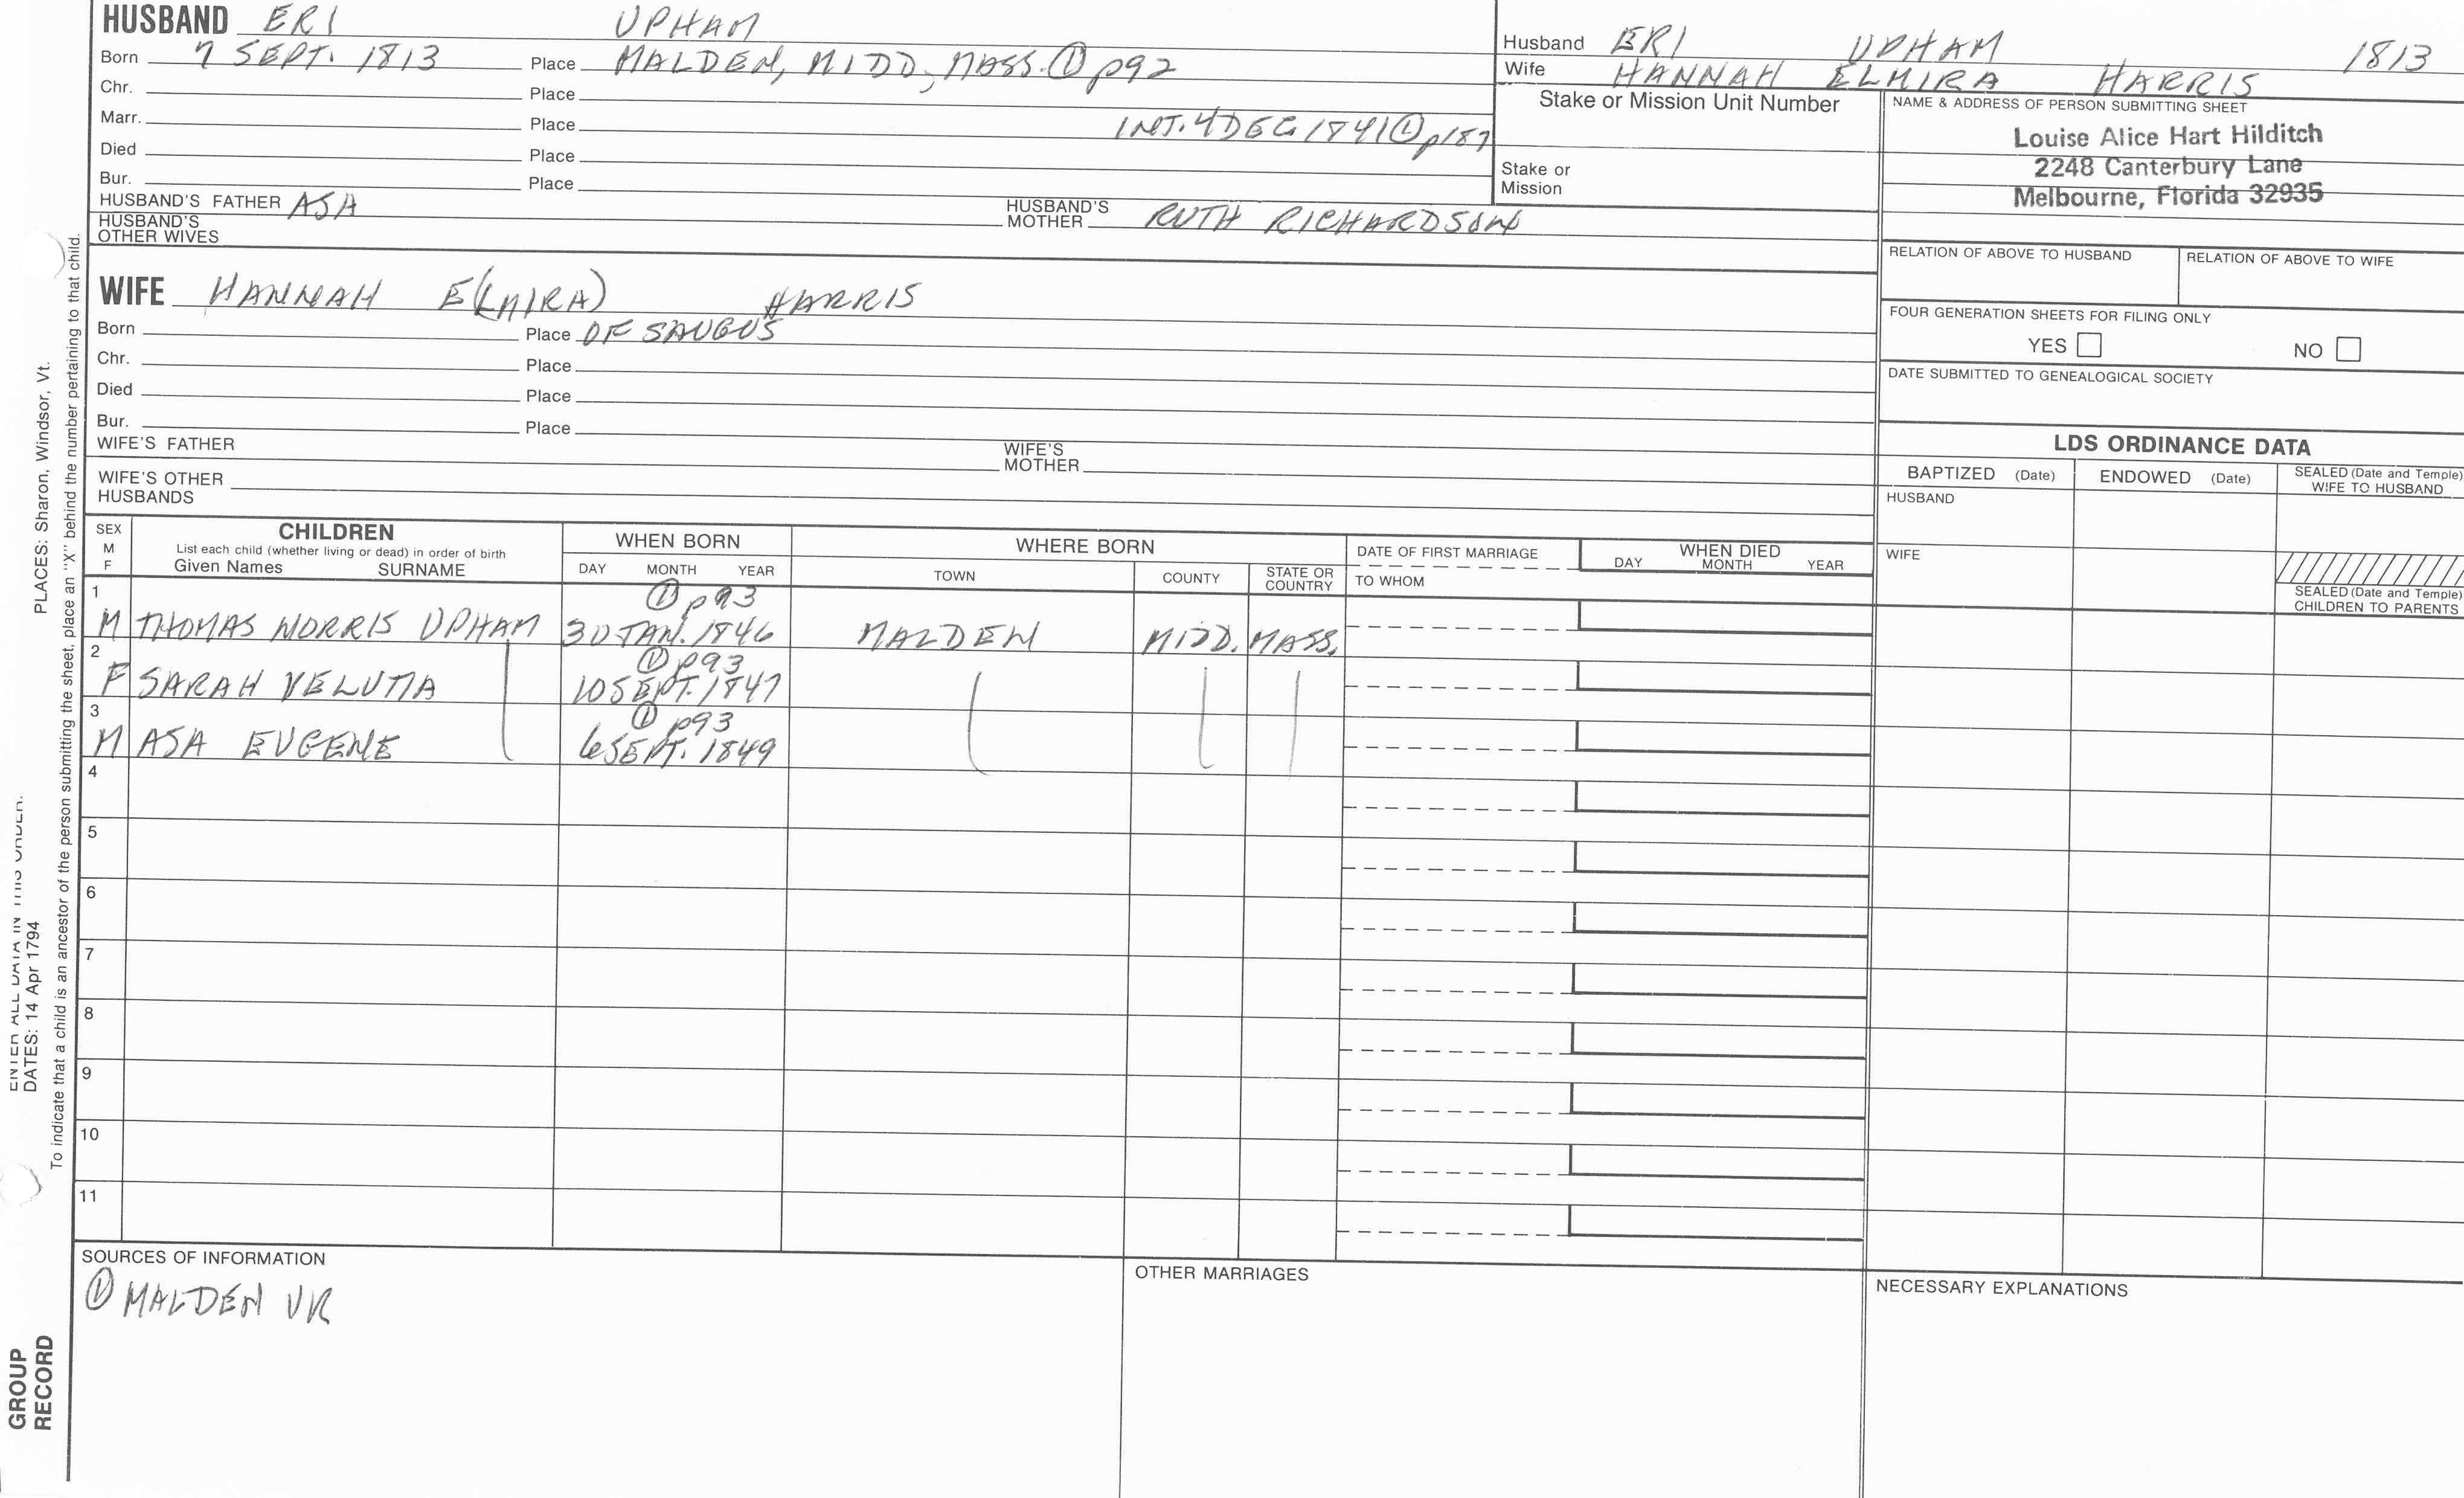 HUSBAND ERI UPHAM
Born 7 SEPT. 1813 Place MALDEN, MIDD, MASS. ① p92
Chr. Place
Marr. Place INT. 4 DEC 1841 ① p187
Died Place
Bur. Place
HUSBAND'S FATHER ASA HUSBAND'S MOTHER RUTH RICHARDSON
HUSBAND'S OTHER WIVES
WIFE HANNAH E(LMIRA) HARRIS
Born Place OF SAUGUS
Chr. Place
Died Place
Bur. Place
WIFE'S FATHER WIFE'S MOTHER
WIFE'S OTHER HUSBANDS
Husband ERI UPHAM 1813
Wife HANNAH ELMIRA HARRIS
Stake or Mission Unit Number
Stake or Mission
NAME & ADDRESS OF PERSON SUBMITTING SHEET
Louise Alice Hart Hilditch
2248 Canterbury Lane
Melbourne, Florida 32935
RELATION OF ABOVE TO HUSBAND RELATION OF ABOVE TO WIFE
FOUR GENERATION SHEETS FOR FILING ONLY
YES NO
DATE SUBMITTED TO GENEALOGICAL SOCIETY
LDS ORDINANCE DATA
BAPTIZED (Date) ENDOWED (Date) SEALED (Date and Temple) WIFE TO HUSBAND
HUSBAND
WIFE
SEALED (Date and Temple) CHILDREN TO PARENTS
SEX M F
CHILDREN
List each child (whether living or dead) in order of birth
Given Names SURNAME
WHEN BORN
DAY MONTH YEAR
WHERE BORN
TOWN COUNTY STATE OR COUNTRY
DATE OF FIRST MARRIAGE
TO WHOM
WHEN DIED
DAY MONTH YEAR
1 ① p93
M THOMAS NORRIS UPHAM 30 JAN. 1846 MALDEN MIDD. MASS.
2 ① p93
F SARAH 10 SEPT. 1847
3 ① p93
M ASA EUGENE 6 SEPT. 1849
4
5
6
7
8
9
10
11
SOURCES OF INFORMATION
① MALDEN VR
OTHER MARRIAGES
NECESSARY EXPLANATIONS
PLACES: Sharon, Windsor, Vt.
To indicate that a child is an ancestor of the person submitting the sheet, place an "X" behind the number pertaining to that child.
ENTER ALL DATA IN THIS ORDER:
DATES: 14 Apr 1794
GROUP
RECORD